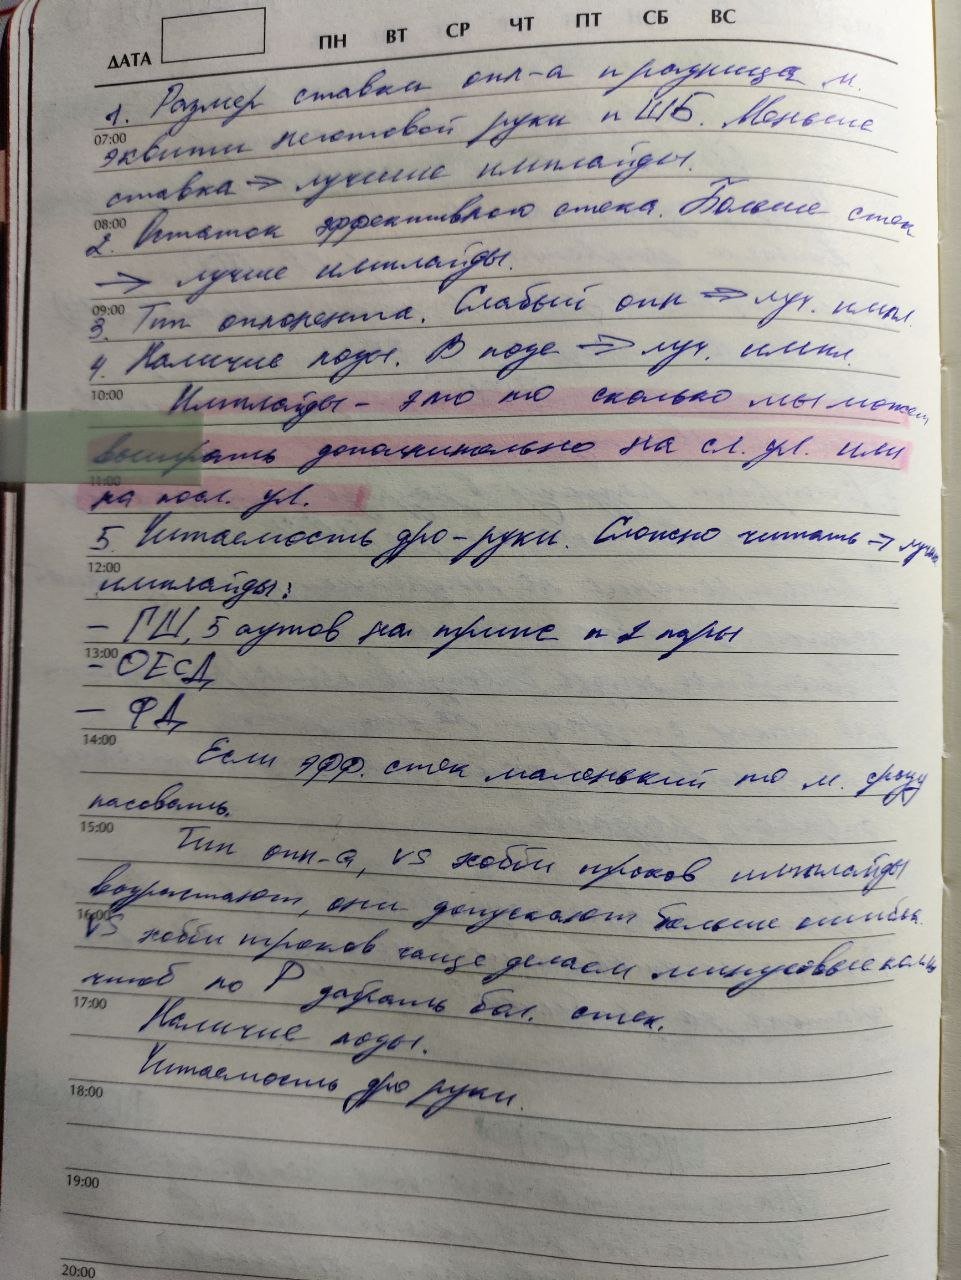 ДАТА ПН ВТ СР ЧТ ПТ СБ ВС
1. Размер ставки опп-а и разница м.
07:00
эквити неготовой руки и ШБ. Меньше
ставка → лучшие имплайды.
08:00
2. Остаток эффективного стека. Больше стек
→ лучше имплайды.
09:00
3. Тип оппонента. Слабый опп → луч. импл.
4. Наличие позы. В позе → луч. импл.
10:00
Имплайды - это то сколько мы можем
выиграть дополнительно на сл. ул. или
11:00
на посл. ул.
5. Читаемость дро-руки. Сложно читать → лучше
12:00
имплайды:
- ГШ, 5 аутов на трипс и 2 пары
13:00
- ОЕСД
- ФД
14:00
Если эфф. стек маленький то м. сразу
пасовать.
15:00
Тип опп-а, vs хобби игроков имплайды
возрастают, они допускают больше ошибок.
16:00
VS хобби игроков чаще делаем минусовые коллы
чтоб по Р забрать бол. стек.
17:00
Наличие позы.
Читаемость дро руки.
18:00
19:00
20:00